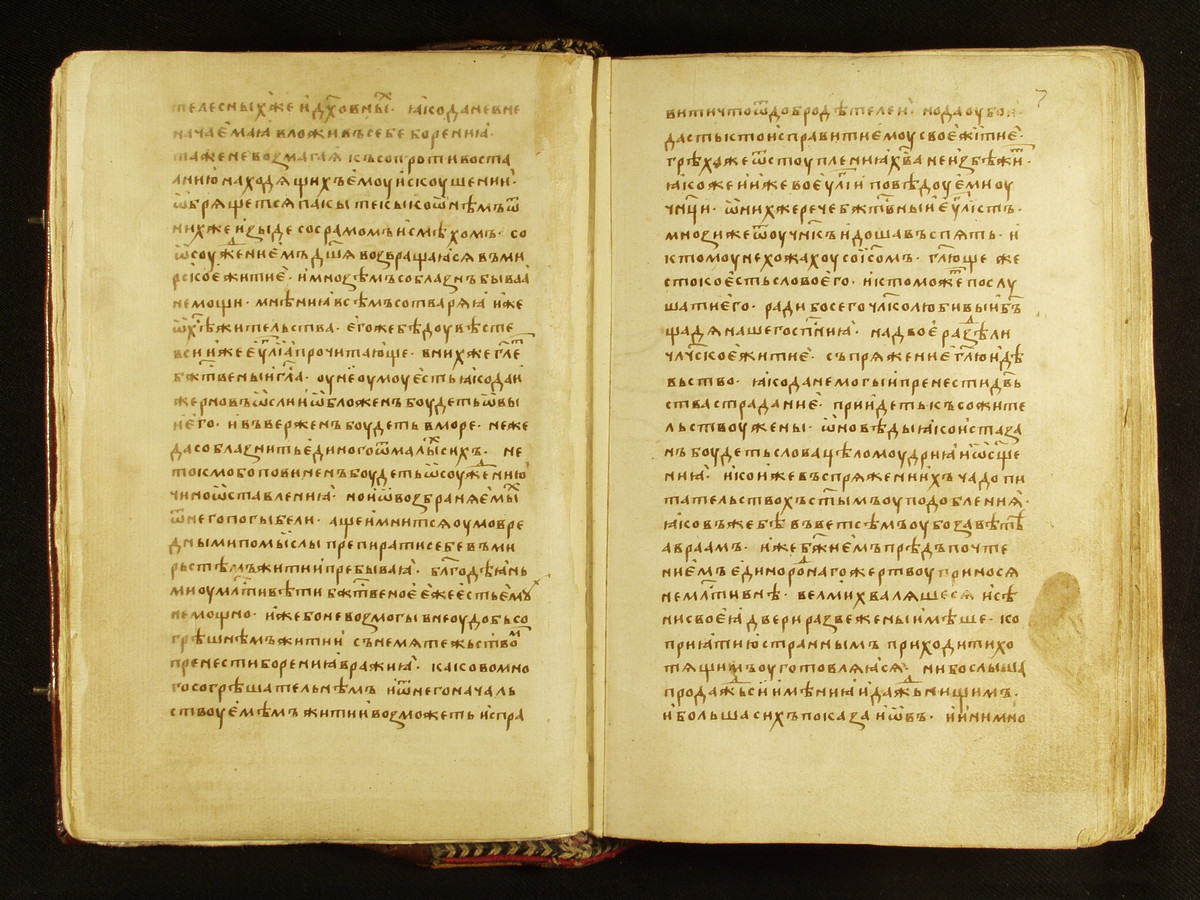 телесныхже идх҃овны́х· ꙗ҆коданевне
начаемаꙗ вложивъсебе боренїа·
таженевозмагаꙗ късопротивоста
анию находящихъемоу и҆скоушенїи·
ѡ҆брящетсяпакы текыкоѿнѣмъѿ
нихжеи҆зыде сосрамомъ и҆смѣхомъ· со
ѿсоуженїемъ дш҃а возвращаꙗсявъми
рскоежитїе· и҆мноземъсоблазнъбываа
немощи· мнѣнїа всѣмъсотварѧꙗ и҆же
ѡх҃ѣжительства· е҆гожебѣдоувѣсте
вси и҆жее҆ѵ҃лїа прочитающе· внихжегл҃е
бж҃твеныигл҃а· оунеѡумоуесть ꙗ҆кодаи
жерновъѡ҆слиѝ ѡ҆бложенъбоудетьѡ҆вы
ие҆го· и въверженъбоудеть вморе· неже
дасоблазнитъединогоѿмалыхсихъ· не
токмобоповиненъбоудетьѡ҆соужению
чиноѡ҆ставленїа· ноиѡ҆возбраняемы́х
ѿнегопогыбели· а҆щеи҆мнитсяоумовре
дными помыслы препиратисебевъми
рьстѣмъжитїи пребываꙗ· бл҃годѣꙗнь
миоумл҃тивѣти бж҃твеное е҆жеестьемꙋ
немощно· и҆жебоневозмогы внеоудобьсо
грѣшнѣмъжитїи снемятежьством
пренестиборенїавражїа· каковомно
госогрѣшательнѣмъ и҆ѿнегоначаль
ствоуемѣмъ житїи возможеть испра
7
витичтоѿдобродѣтелеи· нодаоубои
дастьктоисправитиемоу своежитїе·
грѣхажеѿстоупленїа хв҃а неизбѣжит·
ꙗ҆кожеииже вое҆ѵ҃лїи повѣдоуемиоу
чн҃ци· ѡнихжеречебж҃твныи е҆ѵ҃листъ·
мнозижеѿоучн҃къ и҆дошавъспять· и
ктомоунехожахоусои҃сомъ· гл҃юще же
стокоестьсловоего· и҆ктоможетпослу
шатиего· радибосегочлколюбивыи б҃ъ
щадянашегосп҃нїа· надвоеразѣли
члч҃скоежитїе· съпряженїегл҃юидѣ
вьство· ꙗ҆коданемогыипренестидвь
ствастраданїе· прїидетъкъсожите
льствоужены· ѡ҆новѣдыꙗ҆коистяза
нъбоудетьслова цѣломоудрїа иѡ҆сщ҃е
нїа· и҆коижевъспряженїихъ чадопи
тательствохъ ст҃ымъоуподобленїя·
ꙗ҆ковъжебѣ въветсѣмъоубозавѣтѣ
авраамъ· и҆жебж҃иемъпредъпочте
нїемъединороднагожертвоу принося
немл҃тивнѣ· велмихваляшесея исѣ
нисвоеꙗ двери разверженыимѣше· ко
прїатїюстраннымъ приходитихо
тящимъоуготовляꙗся· нибослыша
продаждьсиимѣнїаидаждьнищимъ·
и҆большасихъпоказа иѡ҆въ· и҆ инимно